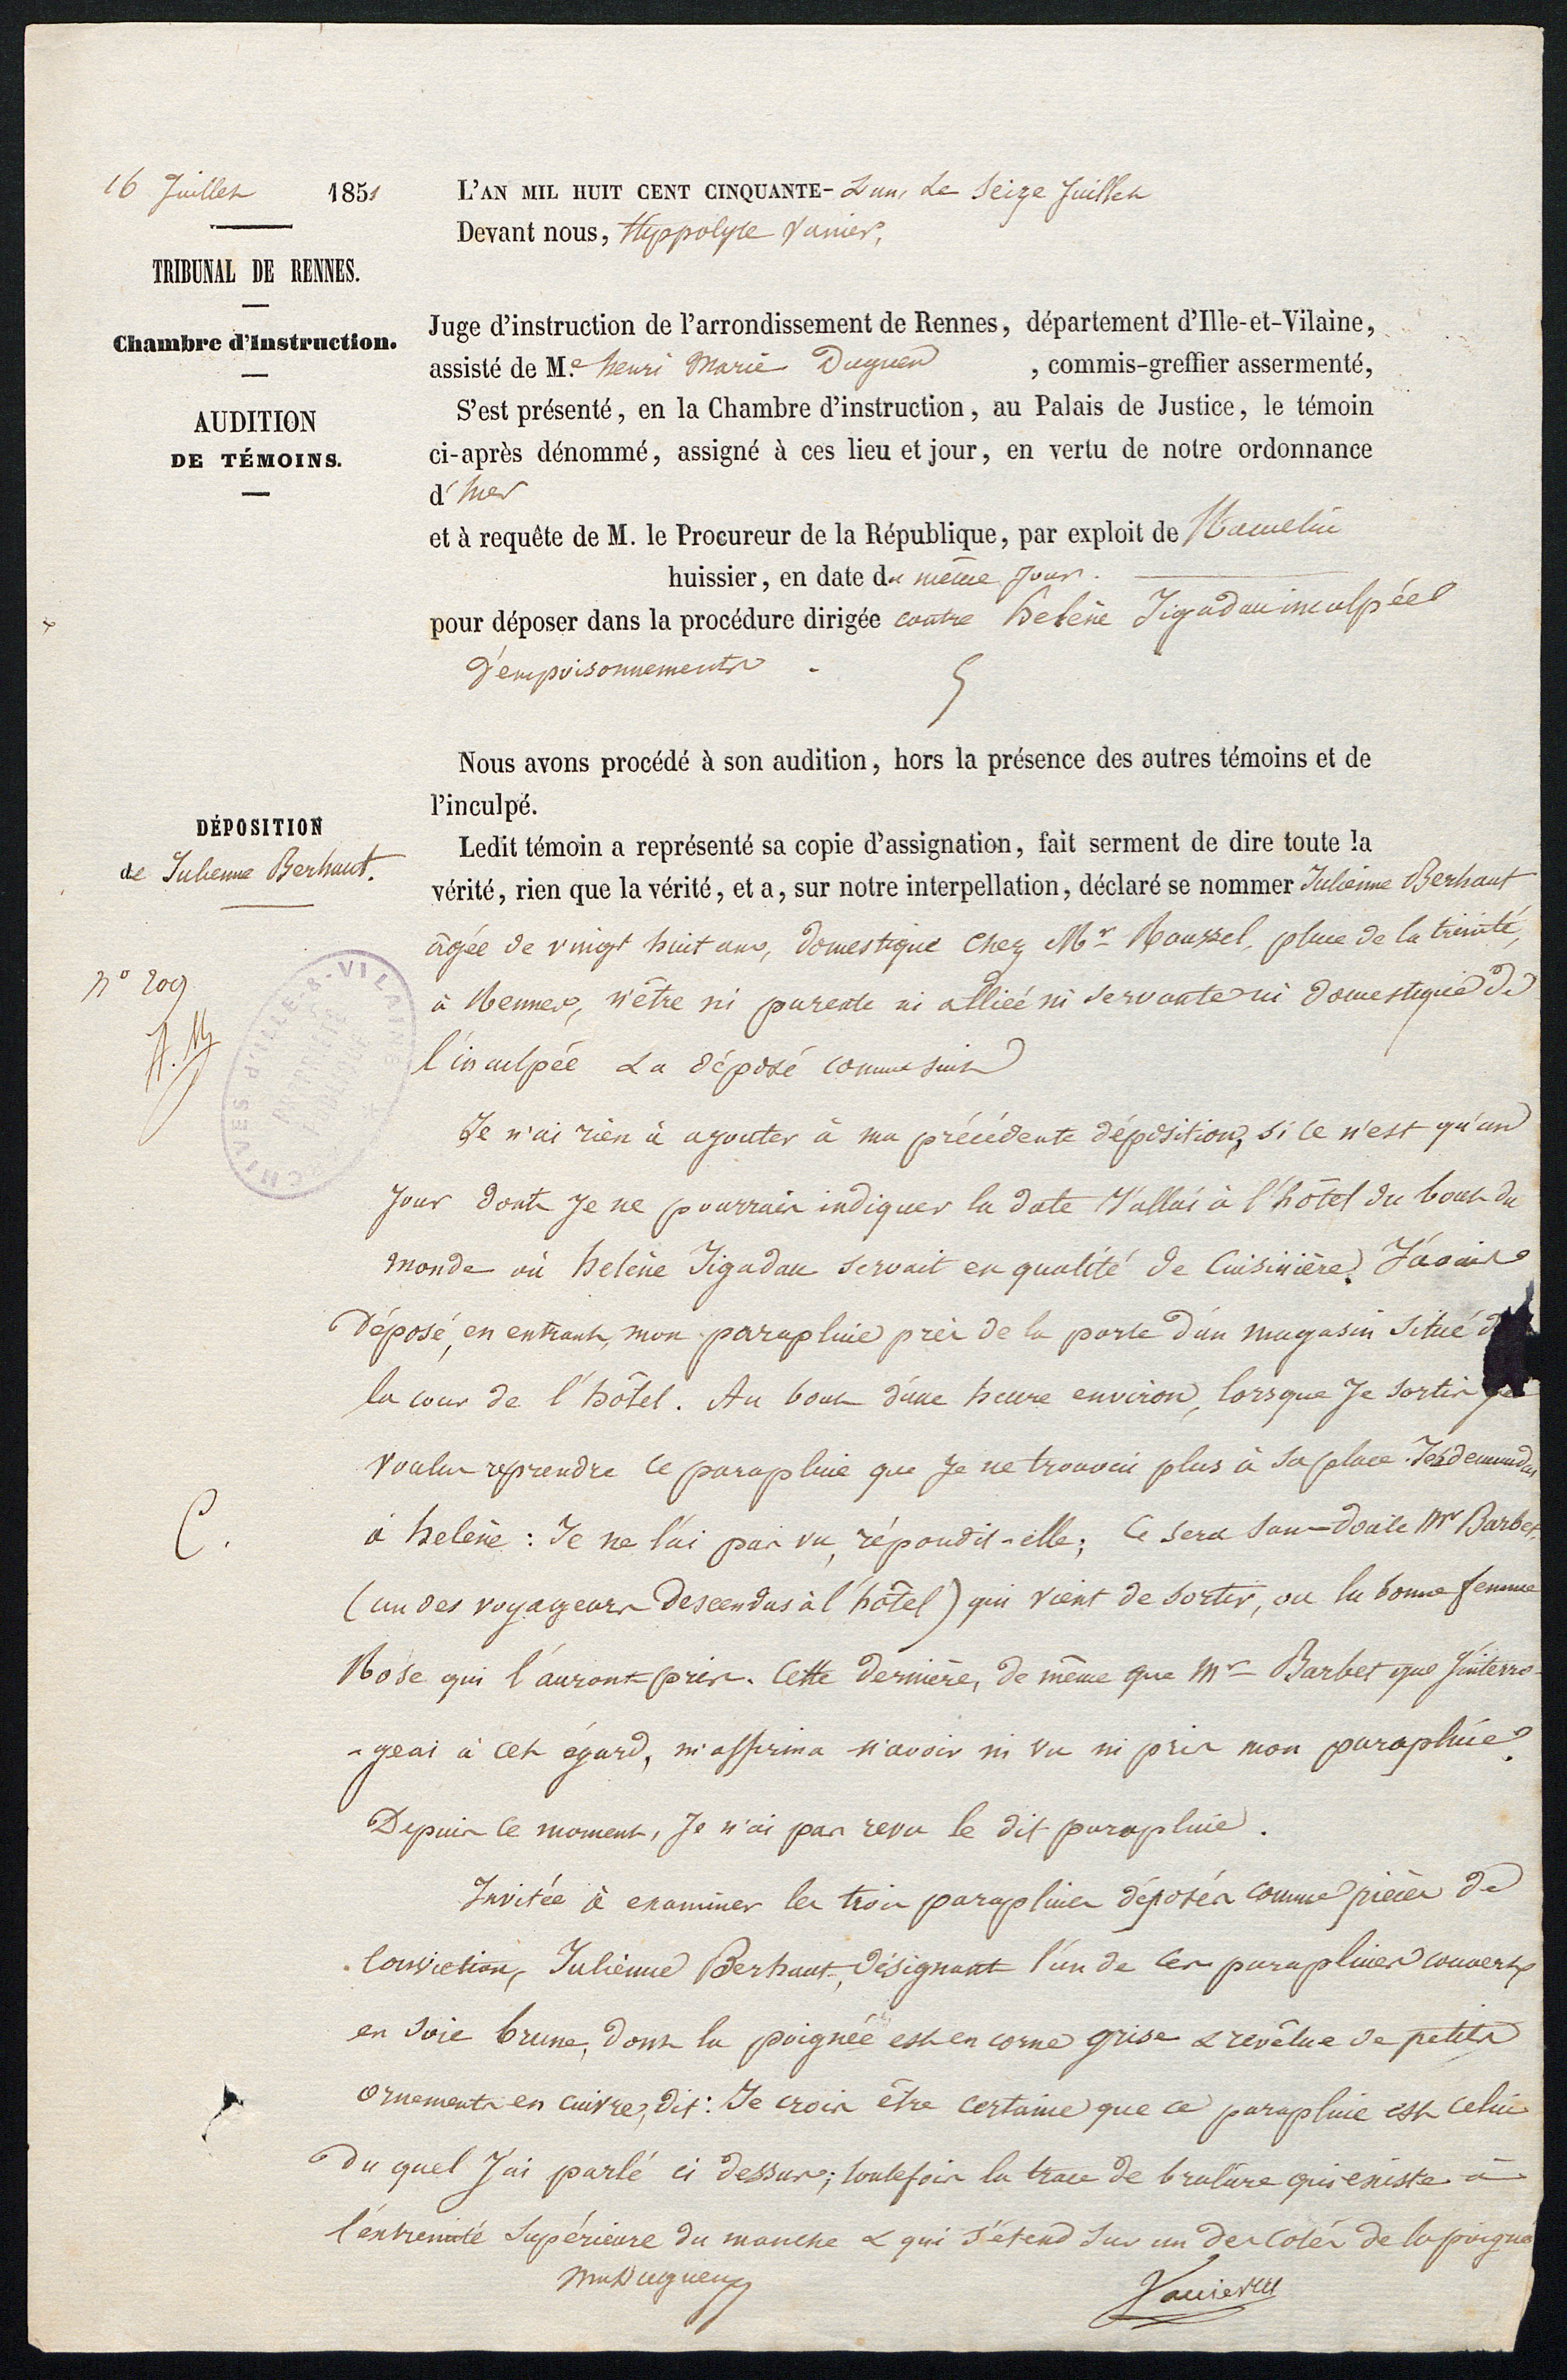 16 Juillet 1851
TRIBUNAL DE RENNES.
Chambre d'Instruction.
AUDITION
DE TÉMOINS.
L'AN MIL HUIT CENT CINQUANTE- & un, Le Seize Juillet
Devant nous, Hyppolyte Vanier,
Juge d'instruction de l'arrondissement de Rennes, département d'Ille-et-Vilaine,
assisté de M.e henri Marie Duguen, commis-greffier assermenté,
S'est présenté, en la Chambre d'instruction, au Palais de Justice, le témoin
ci-après dénommé, assigné à ces lieu et jour, en vertu de notre ordonnance
d'hier
et à requête de M. le Procureur de la République, par exploit de Hamelin
huissier, en date du même jour.
pour déposer dans la procédure dirigée contre helène Jégadau inculpée
d'empoisonnements.
Nous avons procédé à son audition, hors la présence des autres témoins et de
l'inculpé.
DÉPOSITION
de Julienne Berhaut.
n° 209
Ledit témoin a représenté sa copie d'assignation, fait serment de dire toute la
vérité, rien que la vérité, et a, sur notre interpellation, déclaré se nommer Julienne Berhaut
âgée de vingt huit ans, domestique chez Mr Roussel, place de la trinité,
à Rennes, n'être ni parente ni alliée ni servante ni domestique de
l'inculpée & a déposé comme suit
Je n'ai rien à ajouter à ma précédente déposition, si ce n'est qu'un
jour dont je ne pourrais indiquer la date j'allai à l'hôtel du bout du
monde où helène Jégadau servait en qualité de cuisinière. J'avais
déposé, en entrant, mon parapluie près de la porte d'un magasin situé d
la cour de l'hôtel. Au bout d'une heure environ, lorsque je sortis je
voulus reprendre ce parapluie que je ne trouvai plus à sa place. Je le demandai
C.
à helène : Je ne l'ai pas vu, répondit-elle; ce sera sans-doute Mr Barbet,
(un des voyageurs descendus à l'hôtel) qui vient de sortir, ou la bonne femme
Rose qui l'auront pris. Cette dernière, de même que Mr Barbet que j'interro-
-geai à cet égard, m'affirma n'avoir ni vu ni pris mon parapluie.
Depuis ce moment, je n'ai pas revu le dit parapluie.
Invitée à examiner les trois parapluies déposés comme pièces de
conviction, Julienne Berhaut, désignant l'un de ces parapluies couvert
en soie brune, dont la poignée est en corne grise & revêtue de petits
ornements en cuivre, dit : Je crois être certaine que ce parapluie est celui
du quel j'ai parlé ci dessus; toutefois la trace de brulure qui existe à
l'extremité supérieure du manche & qui s'étend sur un des cotés de la poignée
Duguen
Vanier